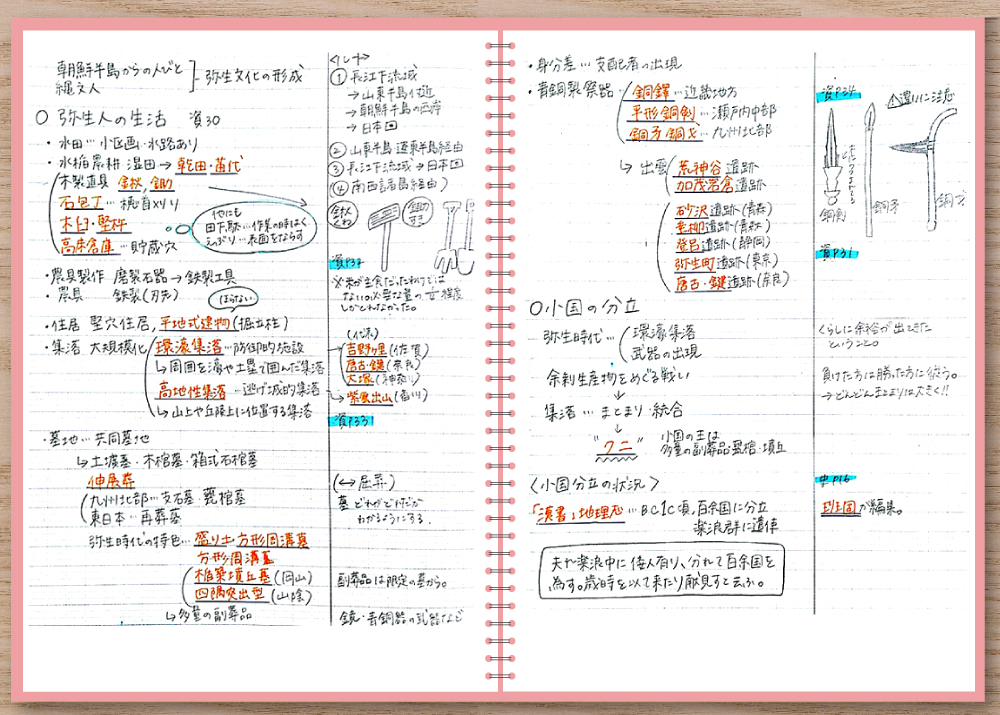 朝鮮半島からの人びと
縄文人
弥生文化の形成
○ 弥生人の生活 資30
・水田…小区画・水路あり
・水稲農耕 湿田→乾田・苗代
木製道具 金秋, 金助
石包丁…穂首刈り
木臼・竪杵
高床倉庫…貯蔵穴
他にも
田下駄…作業の時はく
えぶり…表面をならす
・農具製作 磨製石器→鉄製工具
・農具 鉄製(刃先)
ほらない
・住居 竪穴住居, 平地式建物(掘立柱)
・集落 大規模化 環濠集落…防御的施設
↳周囲を濠や土塁で囲んだ集落
高地性集落…逃げ城的集落
↳山上や丘陵上に位置する集落
・墓地…共同墓地
↳土壙墓・木棺墓・箱式石棺墓
伸展葬
九州北部…支石墓 甕棺墓
東日本…再葬墓
弥生時代の特色…盛り土・方形周溝墓
方形周溝墓
楯築墳丘墓(岡山)
四隅突出型(山陰)
↳多量の副葬品
<ルート>
① 長江下流域
→山東半島付近
→朝鮮半島の西岸
→日本国
② 山東半島 遼東半島経由
③ 長江下流域→日本国
(④ 南西諸島経由)
鍬 くわ
鋤 すき
資P32
※米が主食だったわけでは
ない。必要な量の
程度
しかとれなかった。
(代表)
吉野ヶ里(佐賀)
唐古・鍵(奈良)
大塚(神奈川)
→紫雲出山(香川)
資P33
(↔屈葬)
墓 どれがだれだか
わかるようにする
副葬品は限定の墓から。
鏡・青銅器の武器など
・身分差…支配者の出現
・青銅製祭器…銅鐸…近畿地方
平形銅剣…瀬戸内中部
銅矛 銅戈…九州北部
↳出雲 荒神谷遺跡
加茂岩倉遺跡
砂沢遺跡(青森)
垂柳遺跡(青森)
登呂遺跡(静岡)
弥生町遺跡(東京)
唐古・鍵遺跡(奈良)
○小国の分立
弥生時代…環濠集落
武器の出現
余剰生産物をめぐる戦い
↓
集落…まとまり・統合
↓
"クニ"
小国の王は
多量の副葬品・甕棺・墳丘
<小国分立の状況>
「漢書」地理志…BC1C頃, 百余国に分立
楽浪群に遣使
夫や楽浪中に倭人有り, 分れて百余国を
為す。歳時を以て来たり献見すと云ふ。
資P34
違いに注意
銅剣
銅矛
銅戈
資P31
くらしに余裕が出てきた
ということ。
負けた方は勝った方に従う。
→どんどんまとまりは大きく!!
史P16
班固が編集。